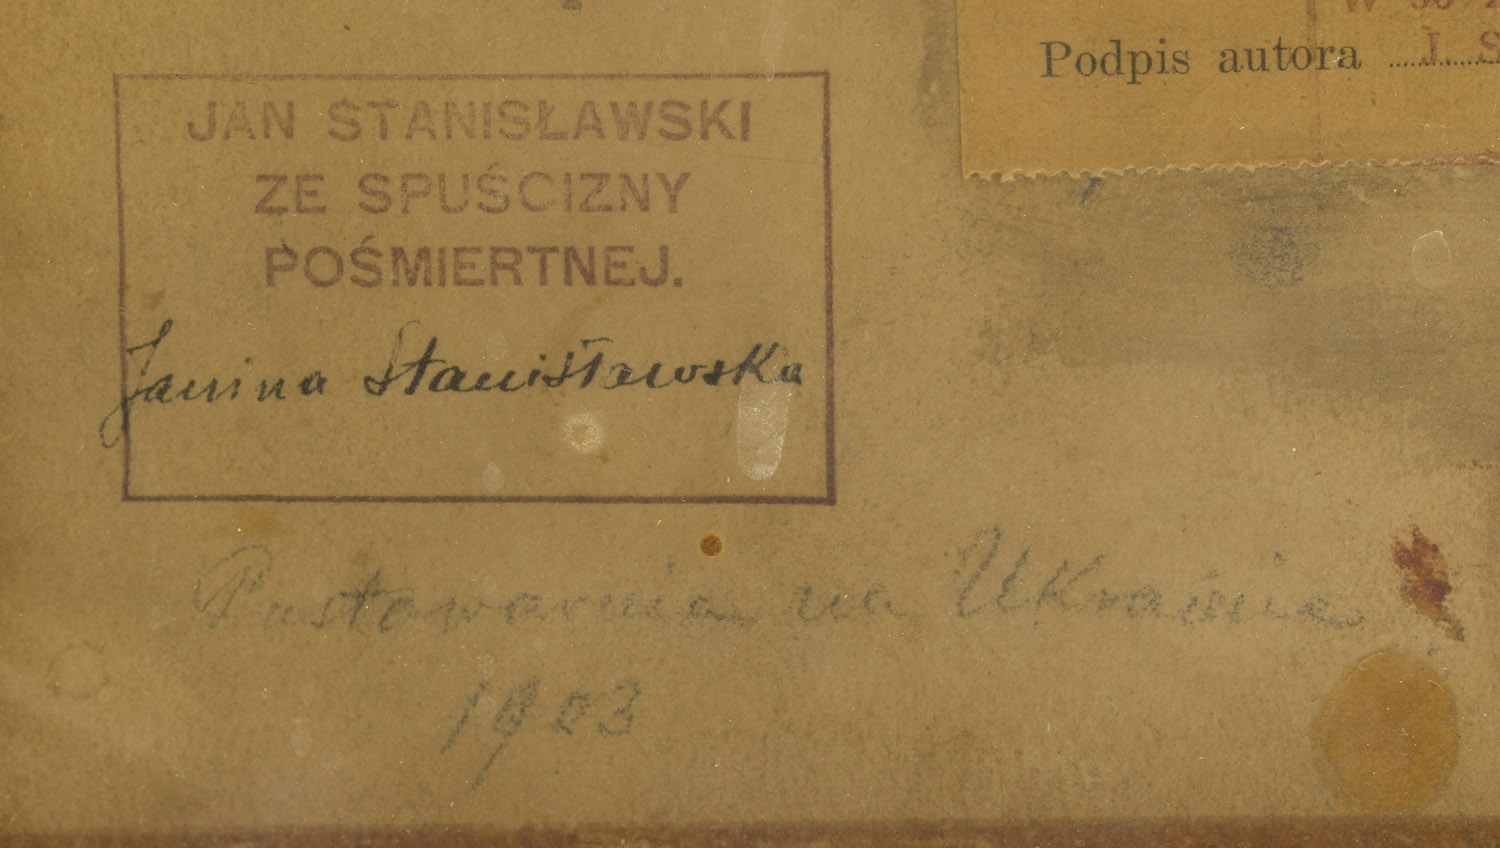 W 30
Podpis autora J. S
JAN STANISŁAWSKI
ZE SPUŚCIZNY
POŚMIERTNEJ.
Janina Stanisławska
Pustowarnia na Ukrainie
1903